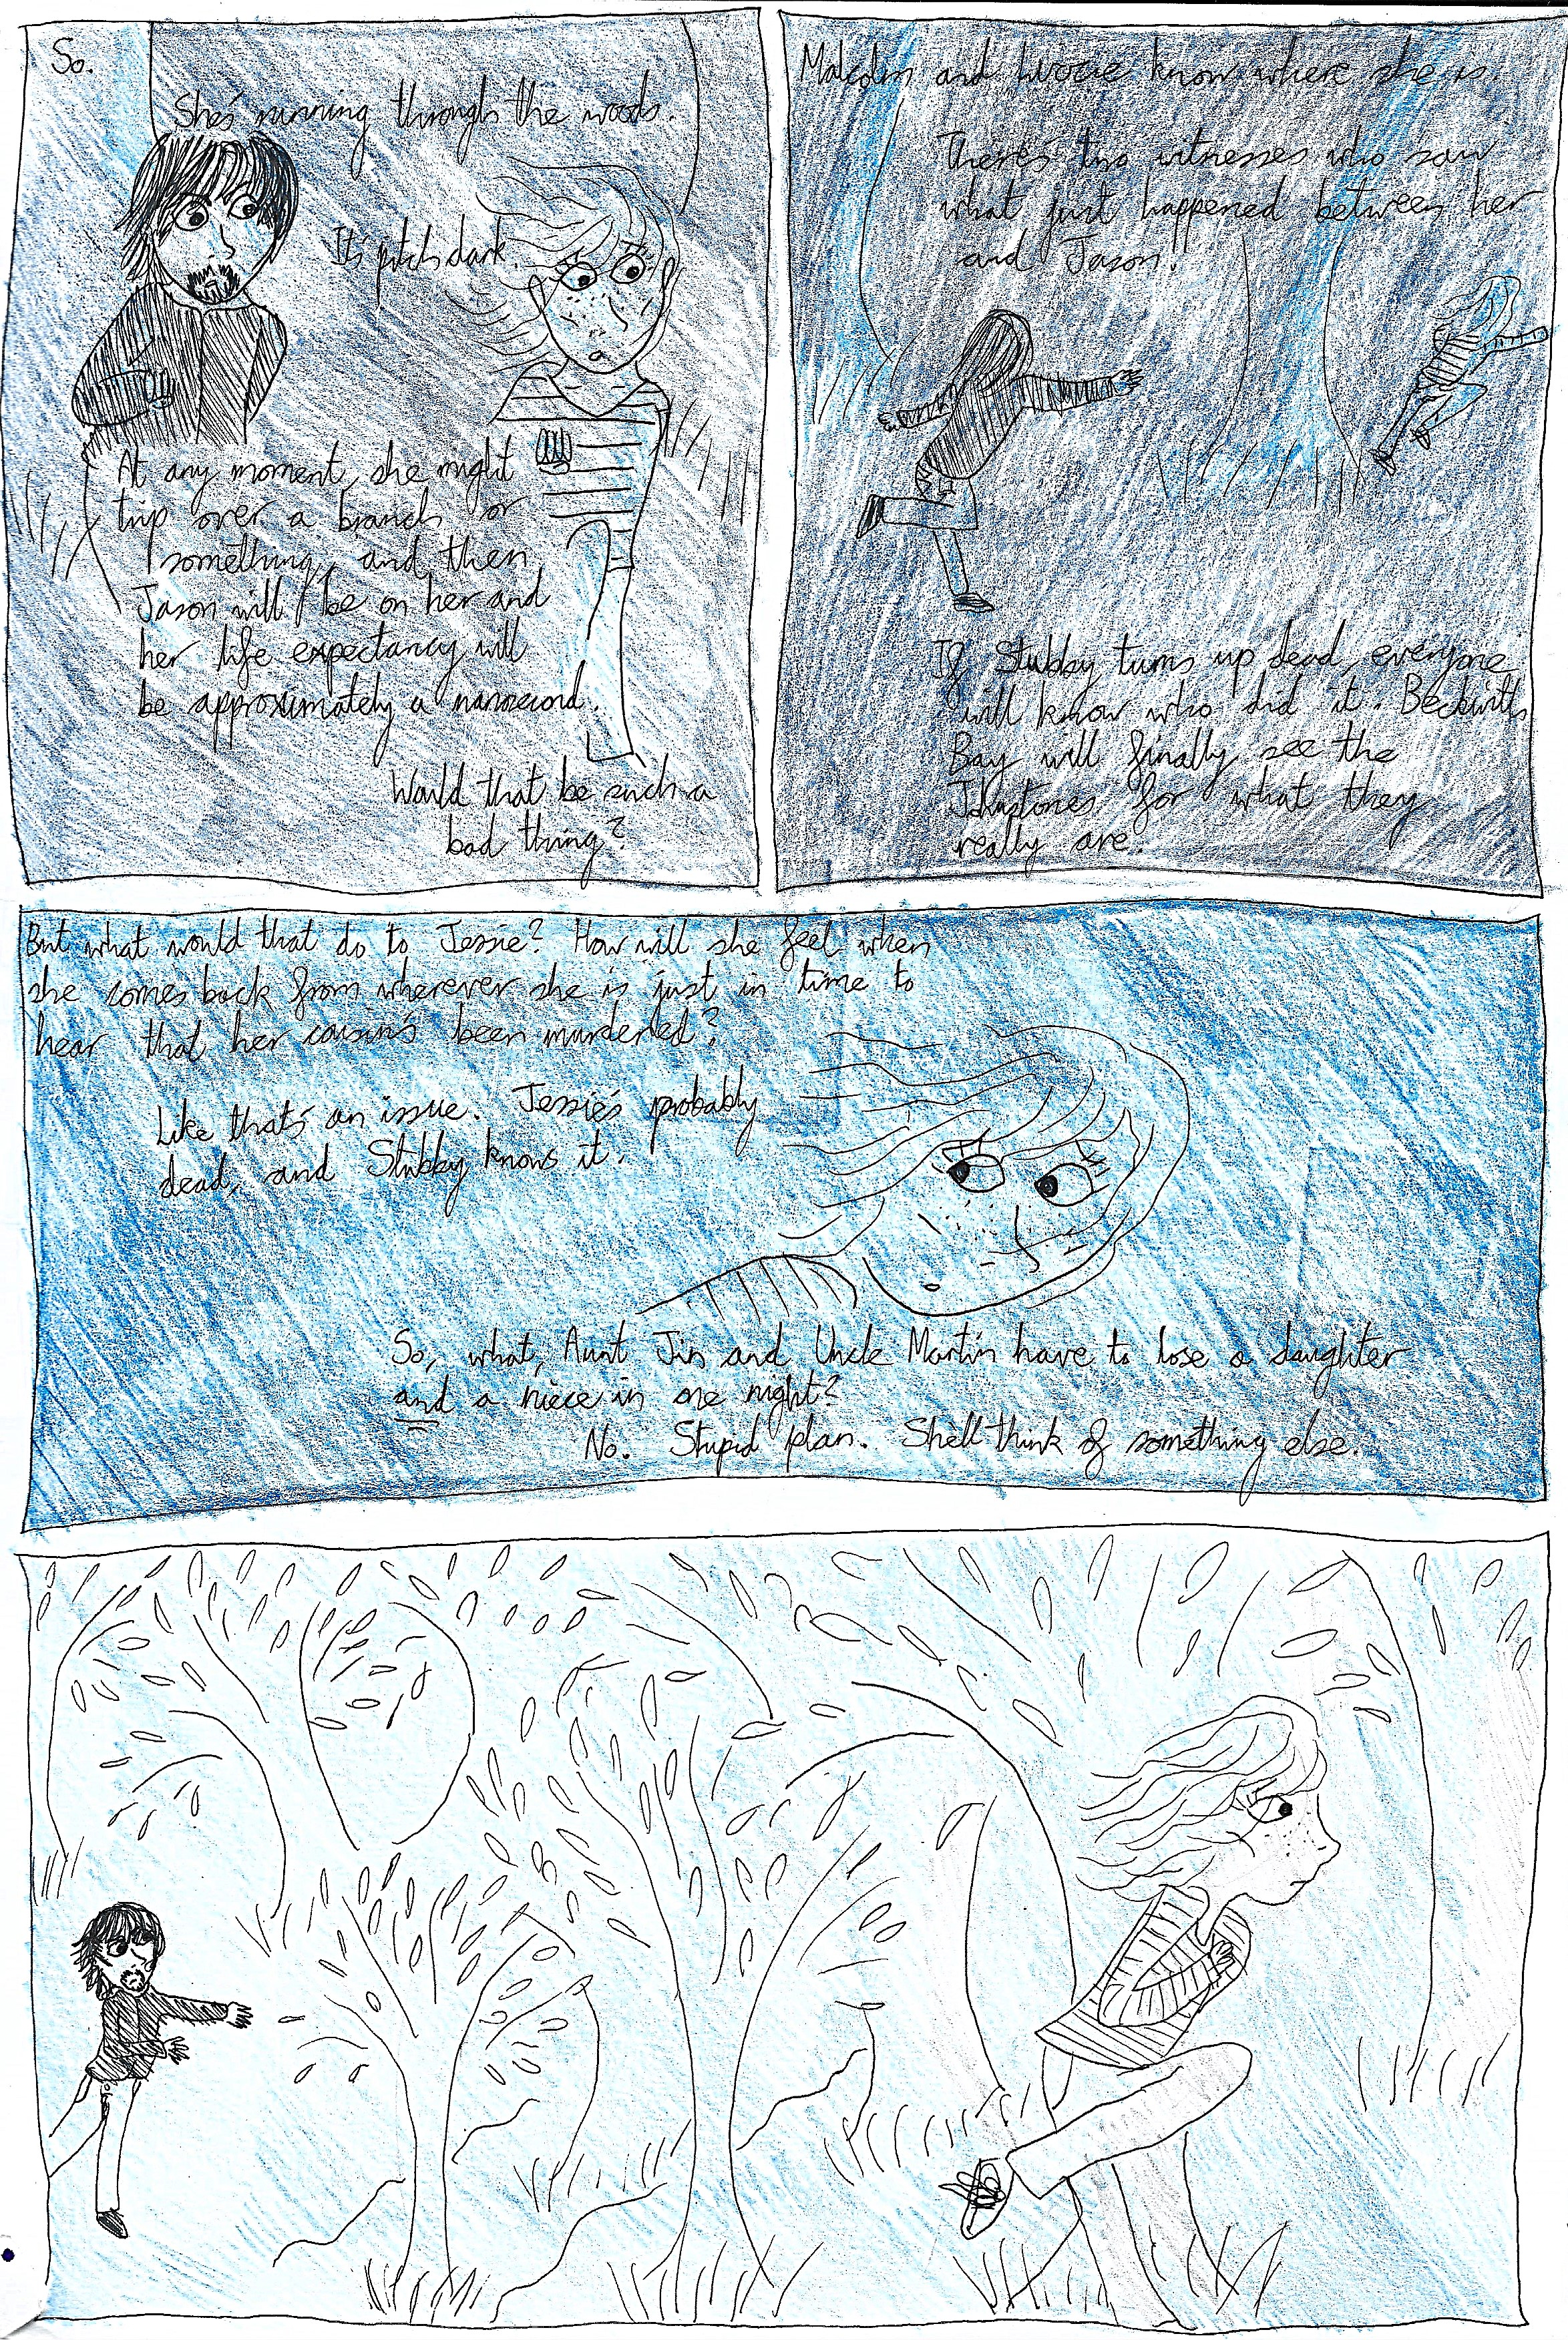 So.
She's running through the woods.
It's pitch dark.
At any moment, she might
trip over a branch or
something, and then
Jason will be on her and
her life expectancy will
be approximately a nanosecond.
Would that be such a
bad thing?
Malcolm and Lizzie know where she is.
There's two witnesses who saw
what just happened between her
and Jason.
If Stubby turns up dead, everyone
will know who did it. Beckwith
Bay will finally see the
Johnstones for what they
really are.
But what would that do to Jessie? How will she feel when
she comes back from wherever she is just in time to
hear that her cousin's been murdered?
Like that's an issue. Jessie's probably
dead, and Stubby knows it.
So, what, Aunt Jin and Uncle Martin have to lose a daughter
and a niece in one night?
No. Stupid plan. She'll think of something else.